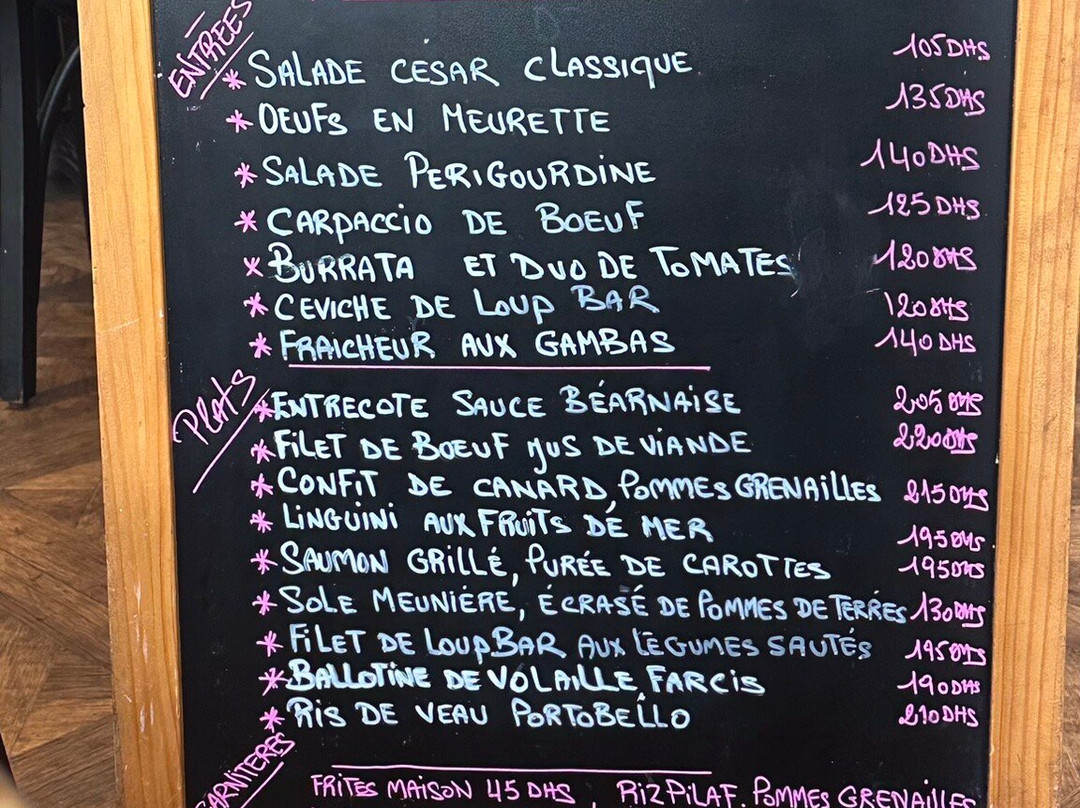 ENTRÉES
* SALADE CESAR CLASSIQUE 105DHS
* OEUFS EN MEURETTE 135DHS
* SALADE PERIGOURDINE 140DHS
* CARPACCIO DE BOEUF 125DHS
* BURRATA ET DUO DE TOMATES 120DHS
* CEVICHE DE LOUP BAR 120DHS
* FRAICHEUR AUX GAMBAS 140DHS
PLATS
* ENTRECOTE SAUCE BÉARNAISE 205DHS
* FILET DE BOEUF JUS DE VIANDE 220DHS
* CONFIT DE CANARD, POMMES GRENAILLES 215DHS
* LINGUINI AUX FRUITS DE MER 195DHS
* SAUMON GRILLÉ, PURÉE DE CAROTTES 195DHS
* SOLE MEUNIÈRE, ÉCRASÉ DE POMMES DE TERRES 130DHS
* FILET DE LOUP BAR AUX LÉGUMES SAUTÉS 195DHS
* BALLOTINE DE VOLAILLE FARCIS 190DHS
* RIS DE VEAU PORTOBELLO 210DHS
GARNITERES
FRITES MAISON 45DHS, RIZ PILAF, POMMES GRENAILLES